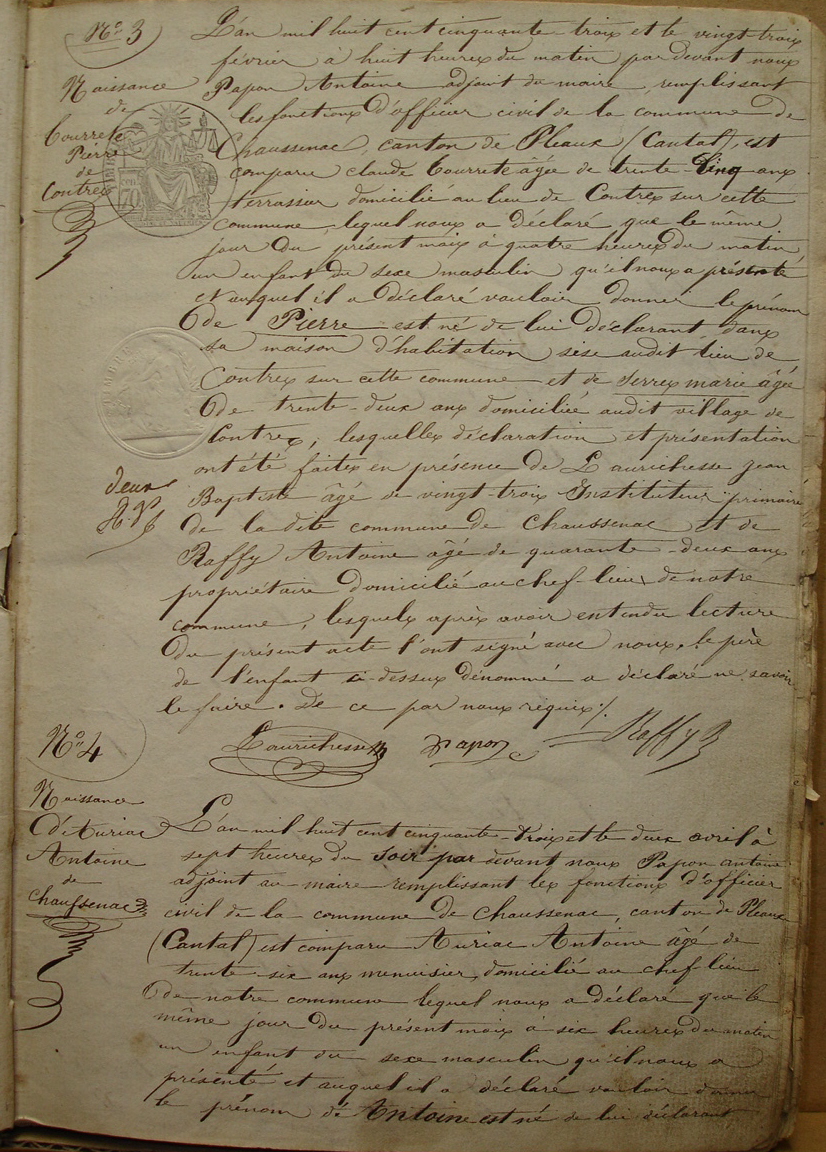 N° 3
Naissance
de
Courrete
Pierre
de
Contrex
L'an mil huit cent cinquante trois et le vingt-trois
février à huit heures du matin par devant nous
Papon Antoine adjoint du maire, remplissant
les fonctions d'officier civil de la commune de
Chaussenac, canton de Pleaux (Cantal), est
comparu claude Courrete âgée de trente-Cinq ans
terrassier domicilié au lieu de Contrex sur cette
commune, lequel nous a déclaré, que le même
jour du présent mois à quatre heures du matin
un enfant du sexe masculin qu'il nous a présenté
et auquel il a déclaré vouloir donner le prénom
de Pierre est né de lui déclarant dans
sa maison d'habitation sise audit lieu de
Contrex sur cette commune et de Serres marie âgée
de trente-deux ans domiciliée audit village de
Contrex, lesquelles déclaration et présentation
ont été faites en présence de Laurichesse jean
Baptiste âgé de vingt-trois Instituteur primaire
de la dite commune de Chaussenac et de
Raffy Antoine âgé de quarante-deux ans
propriétaire domicilié au chef-lieu de notre
commune, lesquels après avoir entendu lecture
du présent acte l'ont signé avec nous. le père
de l'enfant ci-dessus dénommé a déclaré ne savoir
le faire. De ce par nous requis ./.
deux
Laurichesse Papon Raffy
N° 4
Naissance
d'Auriac
Antoine
de
Chaussenac
L'an mil huit cent cinquante-trois et le deux avril à
sept heures du soir par devant nous Papon antoine
adjoint au maire remplissant les fonctions d'officier
civil de la commune de Chaussenac, canton de Pleaux
(Cantal) est comparu Auriac Antoine âgé de
trente-six ans menuisier, domicilié au chef-lieu
de notre commune lequel nous a déclaré que le
même jour du présent mois à six heures du matin
un enfant du sexe masculin qu'il nous a
présenté et auquel il a déclaré vouloir donner
le prénom de Antoine est né de lui déclarant